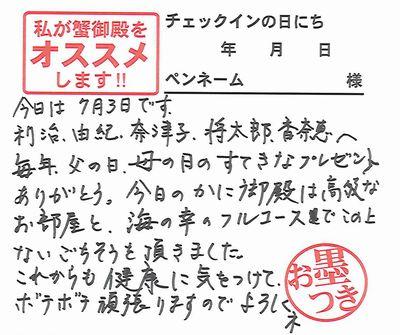 私が蟹御殿を
オススメ
します!!
チェックインの日にち
年 月 日
ペンネーム 様
今日は7月3日です.
利治、由紀、奈津子、将太郎、香奈恵へ
毎年、父の日、母の日のすてきなプレゼント
ありがとう。今日のかに御殿は高級な
お部屋と、海の幸のフルコースでこの上
ないごちそうを頂きました。
これからも健康に気をつけて、
ボチボチ頑張りますのでよろしくネ
お墨つき